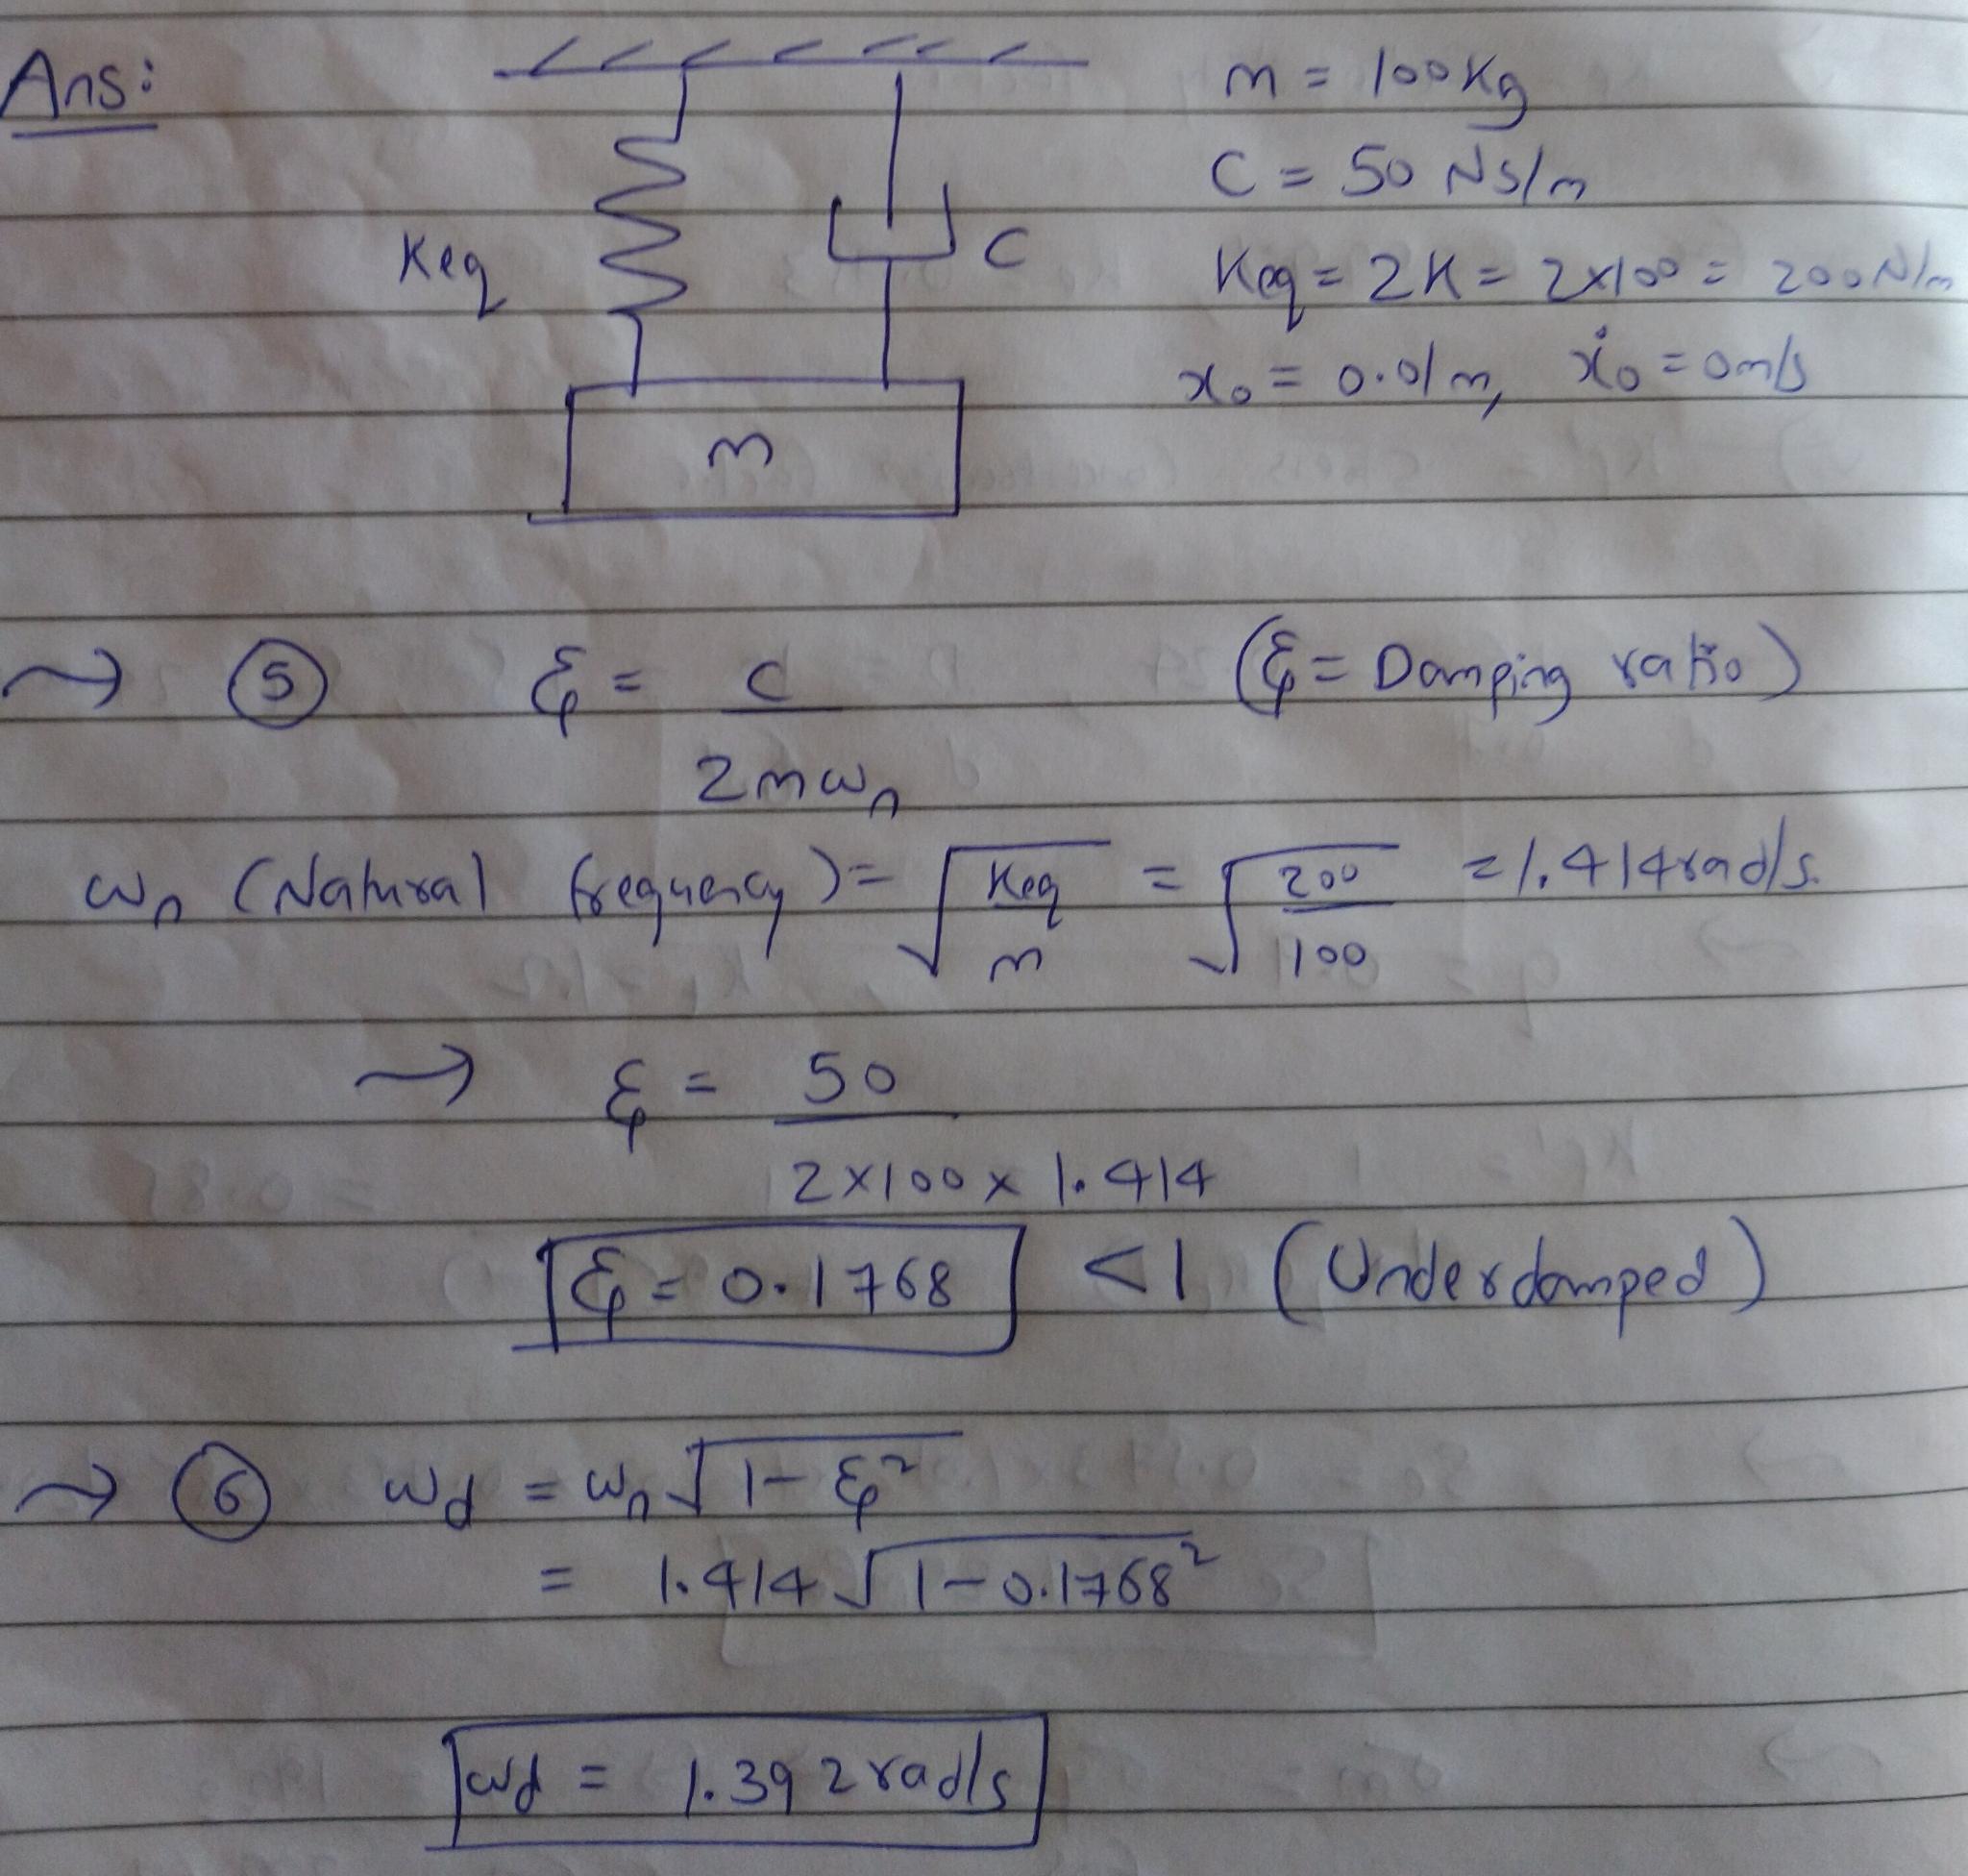 Ans:
m = 100Kg
C = 50 NS/m
Keq
C
Keq = 2K = 2x100 = 200N/m
x₀ = 0.01m, ẋ₀ = 0m/s
m
→ ⑤ ξ = C / 2mωn (ξ = Damping ratio)
ωn (Natural frequency) = √(Keq / m) = √(200 / 100) = 1.414rad/s.
→ ξ = 50 / 2x100x1.414
ξ = 0.1768 < 1 (Underdamped)
→ ⑥ ωd = ωn √(1-ξ²)
= 1.414 √(1-0.1768²)
ωd = 1.392rad/s